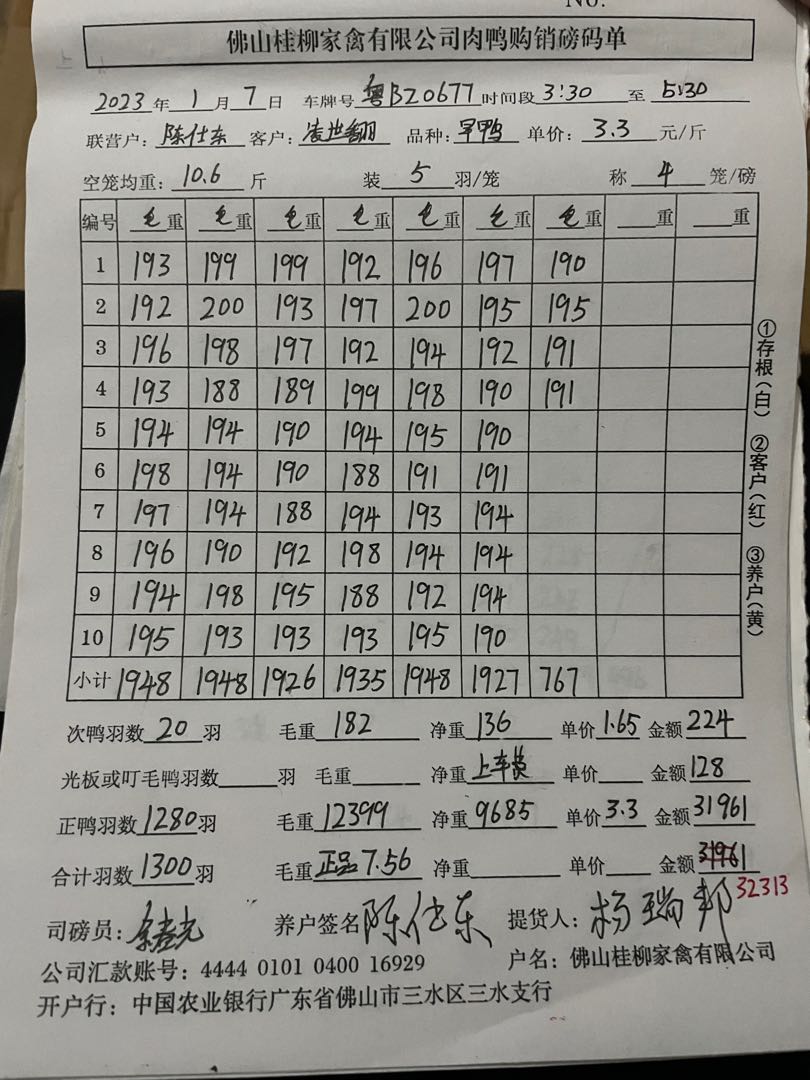 No.
佛山桂柳家禽有限公司肉鸭购销磅码单
2023年1月7日 车牌号粤BZ0677时间段3:30至5:30
联营户:陈仕东 客户:凌世翻 品种:旱鸭 单价:3.3元/斤
空笼均重:10.6斤 装5羽/笼 称4笼/磅
编号 毛重 毛重 毛重 毛重 毛重 毛重 毛重 重 重
1 193 199 199 192 196 197 190
2 192 200 193 197 200 195 195
3 196 198 197 192 194 192 191
4 193 188 189 199 198 190 191
5 194 194 190 194 195 190
6 198 194 190 188 191 191
7 197 194 188 194 193 194
8 196 190 192 198 194 194
9 194 198 195 188 192 194
10 195 193 193 193 195 190
小计 1948 1948 1926 1935 1948 1927 767
①存根(白) ②客户(红) ③养户(黄)
次鸭羽数20羽 毛重182 净重136 单价1.65 金额224
光板或叮毛鸭羽数羽 毛重 净重上车费 单价 金额128
正鸭羽数1280羽 毛重12399 净重9685 单价3.3 金额31961
合计羽数1300羽 毛重正品7.56 净重 单价 金额31961
32313
司磅员: 养户签名陈仕东 提货人:杨瑞邦
公司汇款账号:4444 0101 0400 16929 户名:佛山桂柳家禽有限公司
开户行:中国农业银行广东省佛山市三水区三水支行